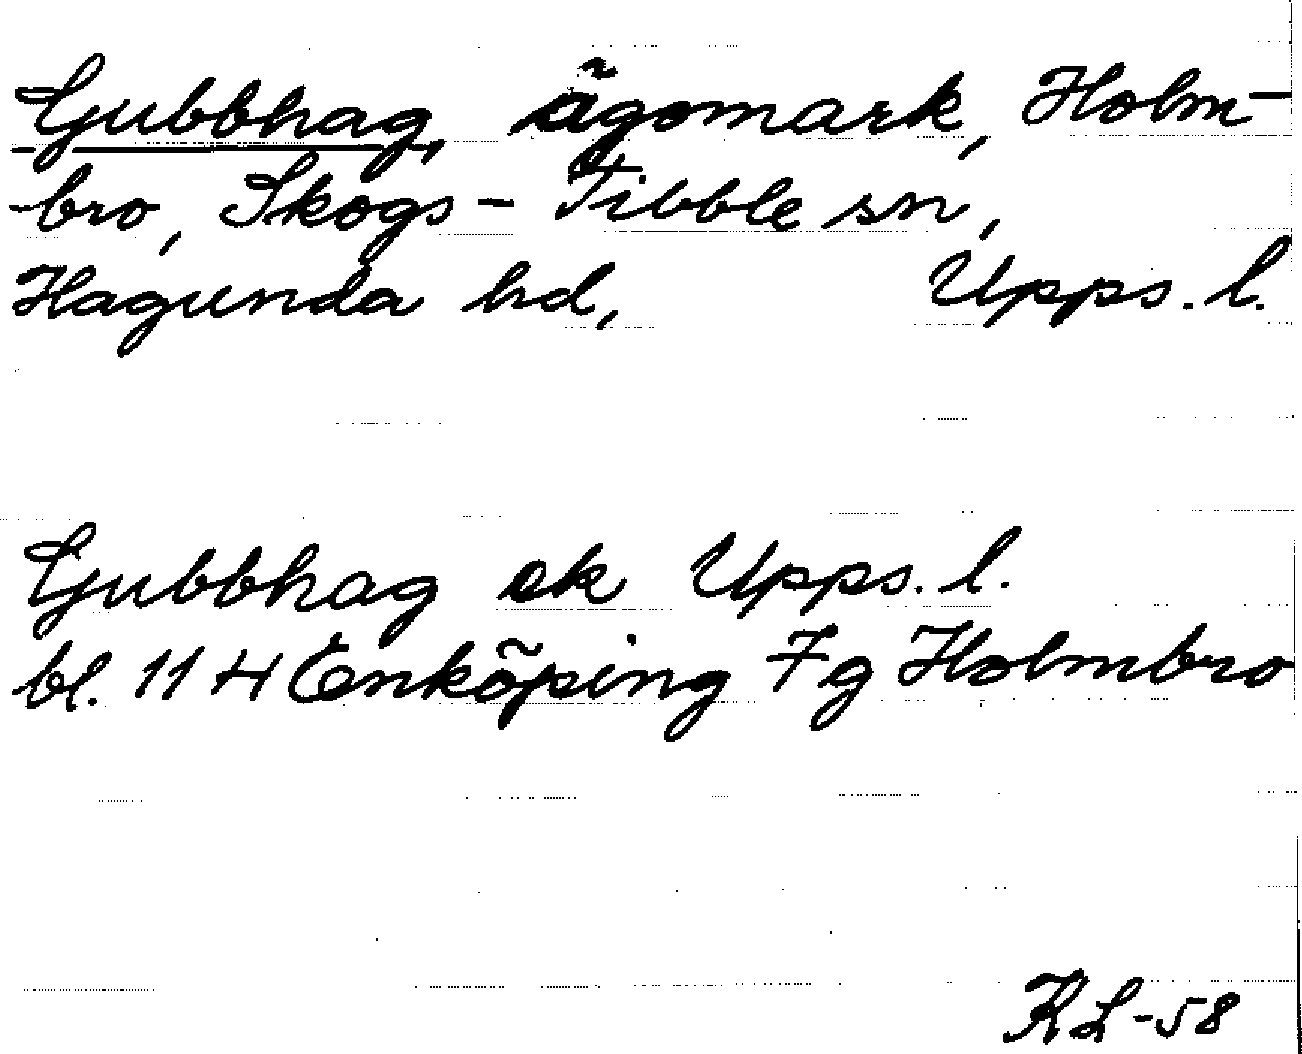 Gubbhag, ägomark, Holm-
bro, Skogs-Tibble sn,
Hagunda hd, Upps. l.
Gubbhag ek Upps. l.
bl. 11 H Enköping 7g Holmbro
KL-58